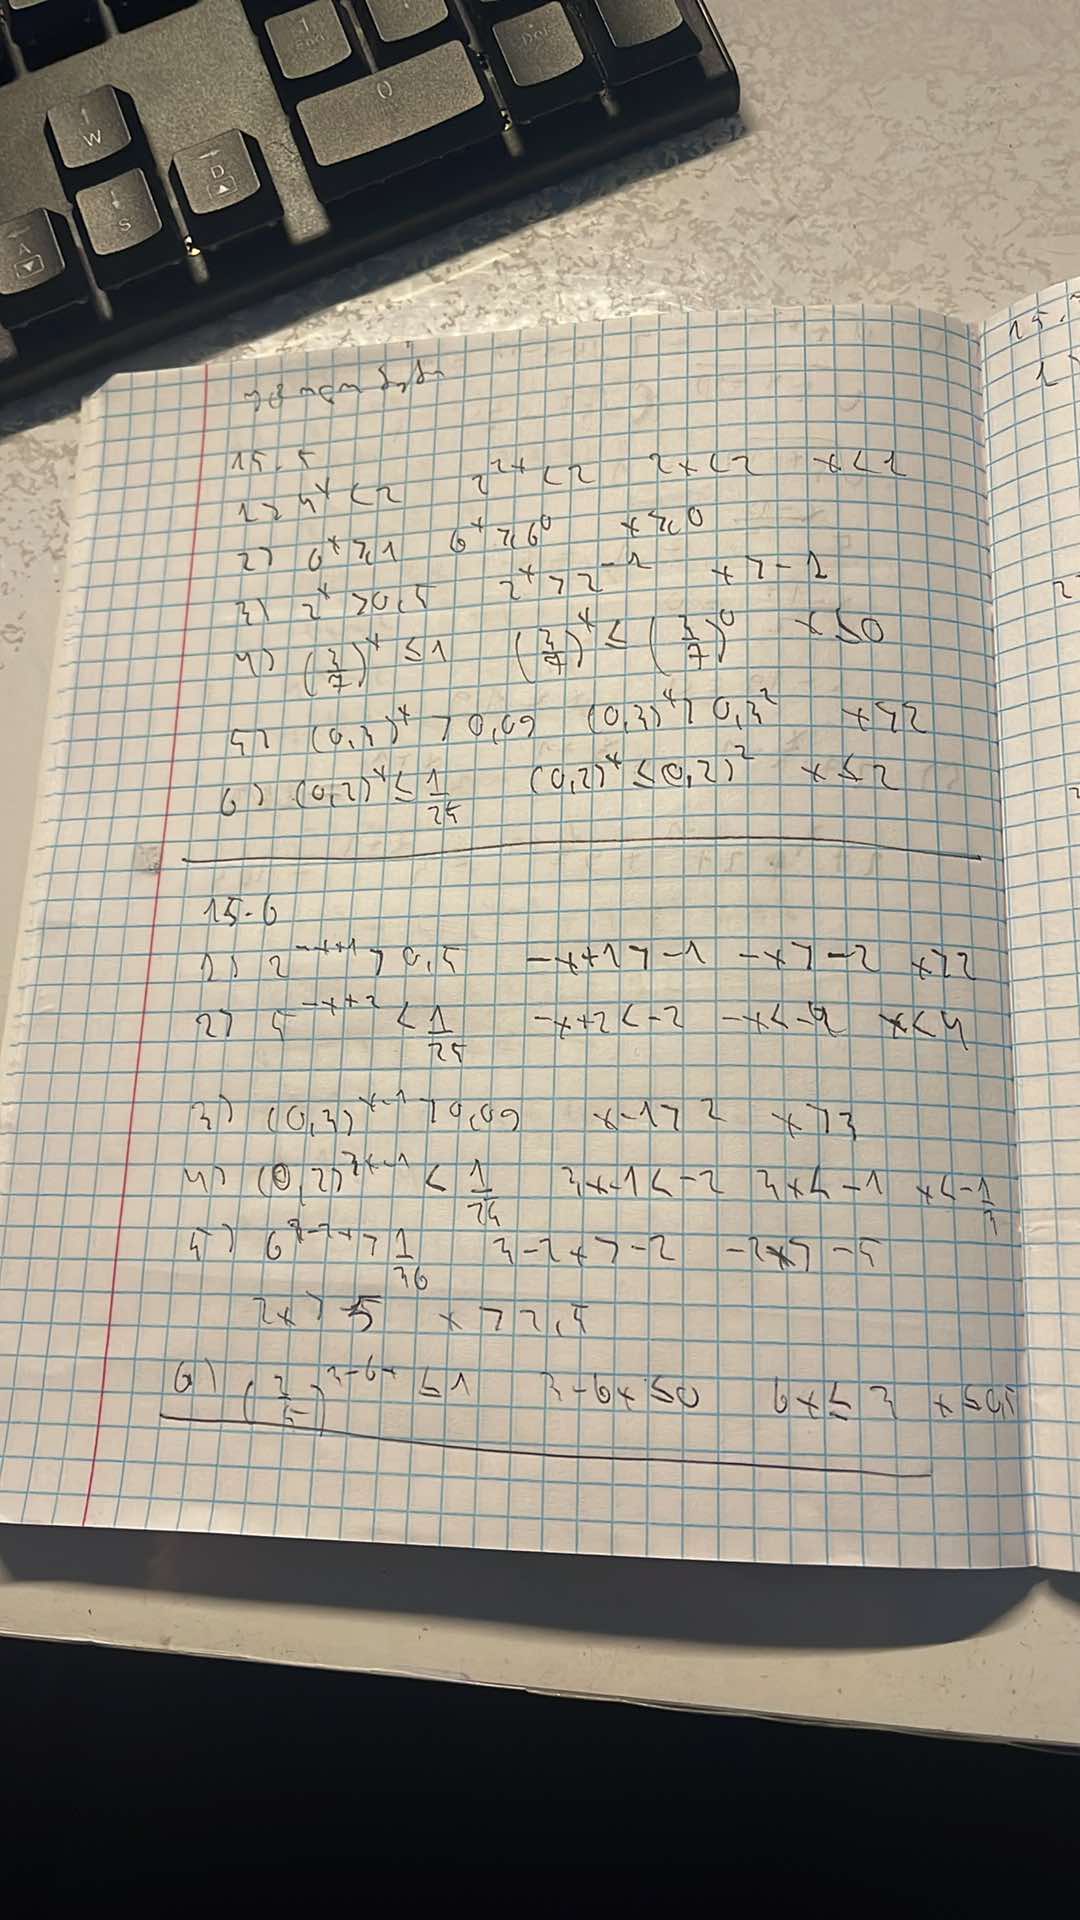 W
S
A
D
0
Del
15.5
1) 4^x < 2 2^2x < 2 2x < 2 x < 1
2) 6^x ⩾ 1 6^x ⩾ 6^0 x ⩾ 0
3) 2^x > 0,5 2^x > 2^-1 x > -1
4) (3/7)^x ≤ 1 (3/7)^x ≤ (3/7)^0 x ≤ 0
5) (0,3)^x > 0,09 (0,3)^x > 0,3^2 x > 2
6) (0,2)^x ≤ 1/25 (0,2)^x ≤ (0,2)^2 x ≤ 2
15.6
1) 2^-x+1 > 0,5 -x+1 > -1 -x > -2 x > 2
2) 5^-x+2 < 1/25 -x+2 < -2 -x < -4 x < 4
3) (0,3)^x-1 > 0,09 x-1 > 2 x > 3
4) (0,2)^3x-1 < 1/25 3x-1 < -2 3x < -1 x < -1/3
5) 6^3-2x > 1/36 3-2x > -2 -2x > -5
2x > 5 x > 2,5
6) 3-6x ≤ 1 3-6x ≤ 0 6x ≤ 3 x ≤ 0,5
15.
1
2